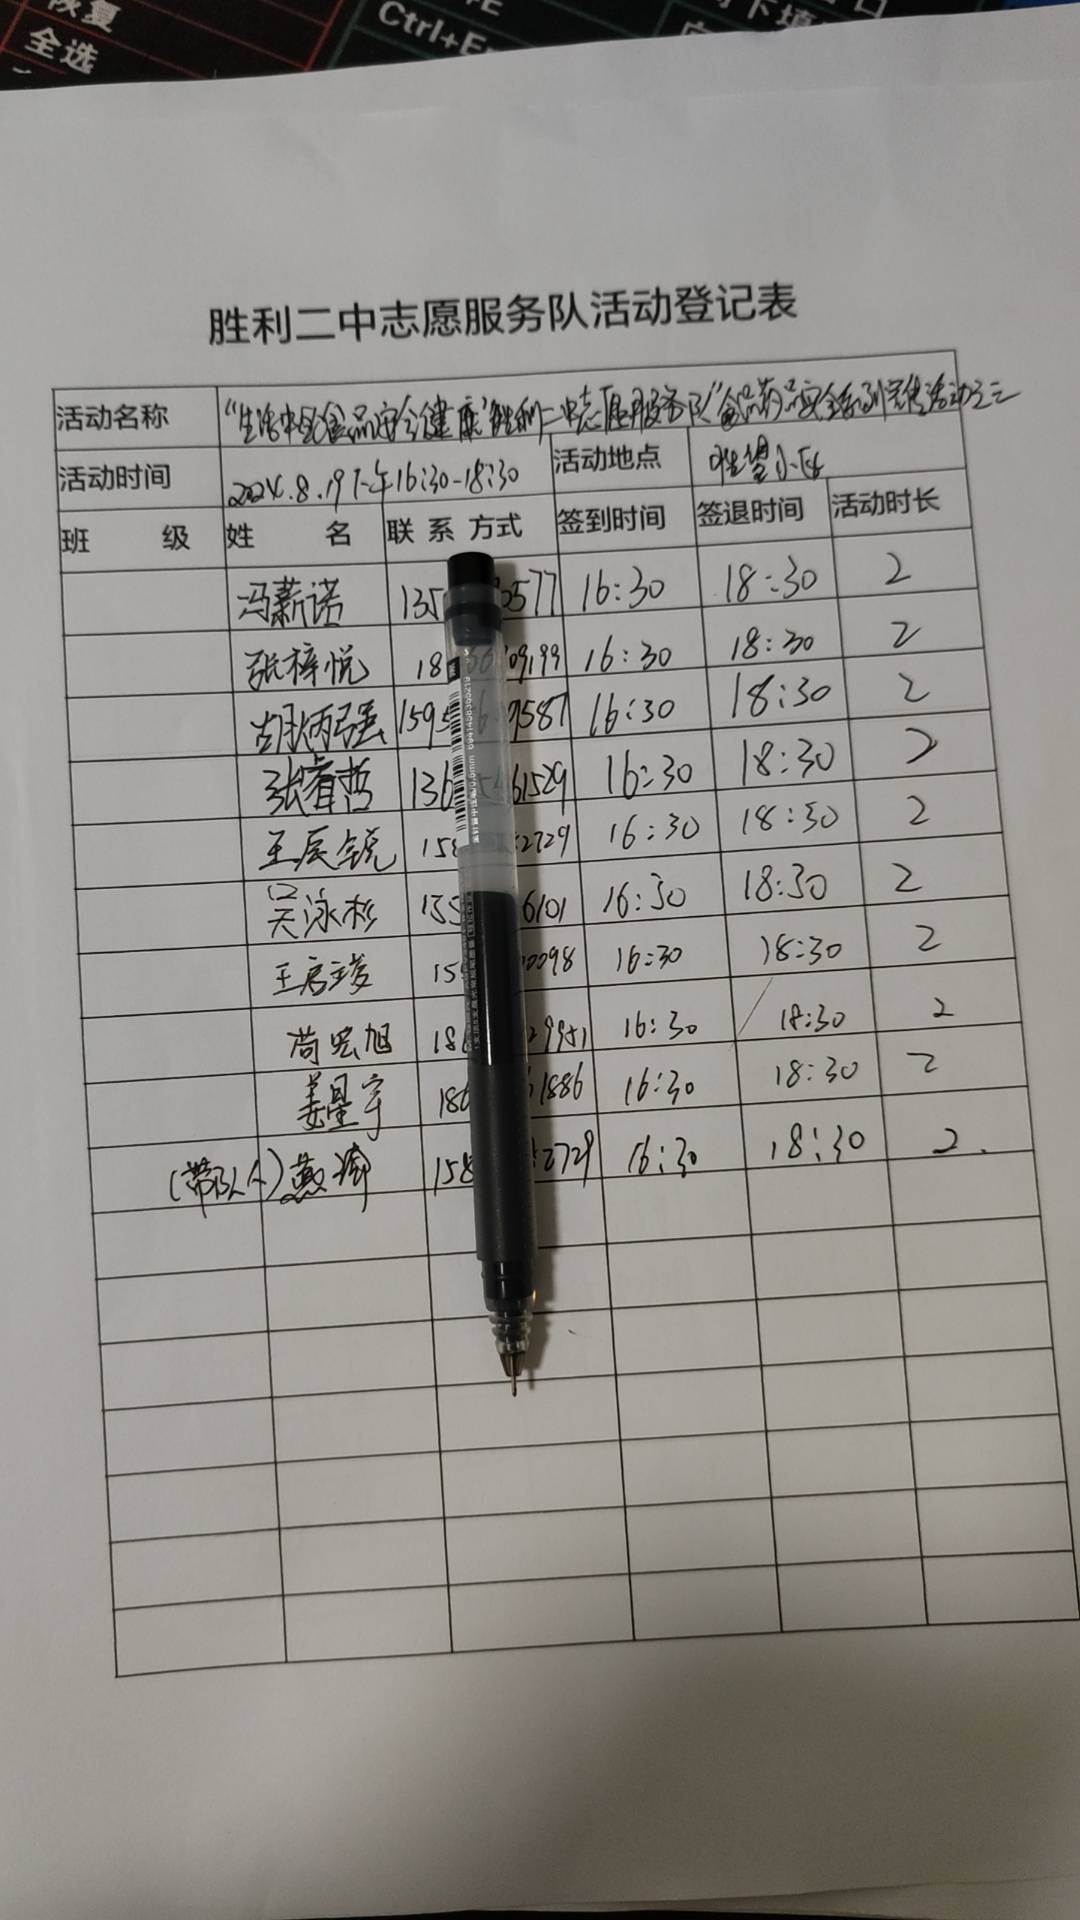 恢复
全选
Ctrl+E
下填
胜利二中志愿服务队活动登记表
活动名称 "生活中的食品安全健康"胜利二中志愿服务队"食品药品安全系列宣传活动之三
活动时间 2024.8.19下午16:30-18:30 活动地点
班 级 姓 名 联系方式 签到时间 签退时间 活动时长
冯薪诺 135 0577 16:30 18:30 2
张梓悦 18 09199 16:30 18:30 2
胡炳强 1595 9587 16:30 18:30 2
张睿哲 136 61529 16:30 18:30 2
王辰锐 158 2729 16:30 18:30 2
吴泳杉 135 6101 16:30 18:30 2
王启 15 0098 16:30 18:30 2
荀宏旭 186 29951 16:30 18:30 2
姜星宇 186 1886 16:30 18:30 2
(带队人) 158 2729 16:30 18:30 2.